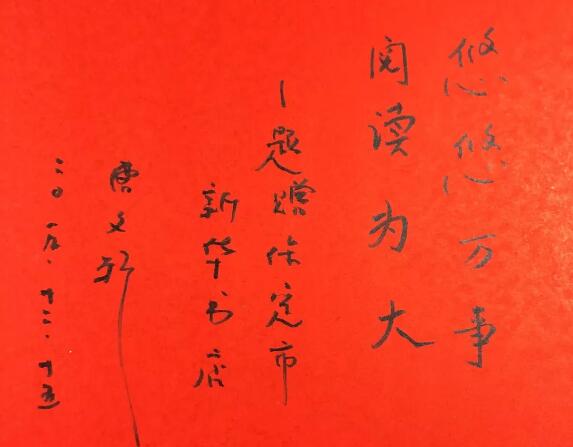 悠悠万事
阅读为大
—题赠保定市
新华书店
唐文彰
二〇一九.十二.十五